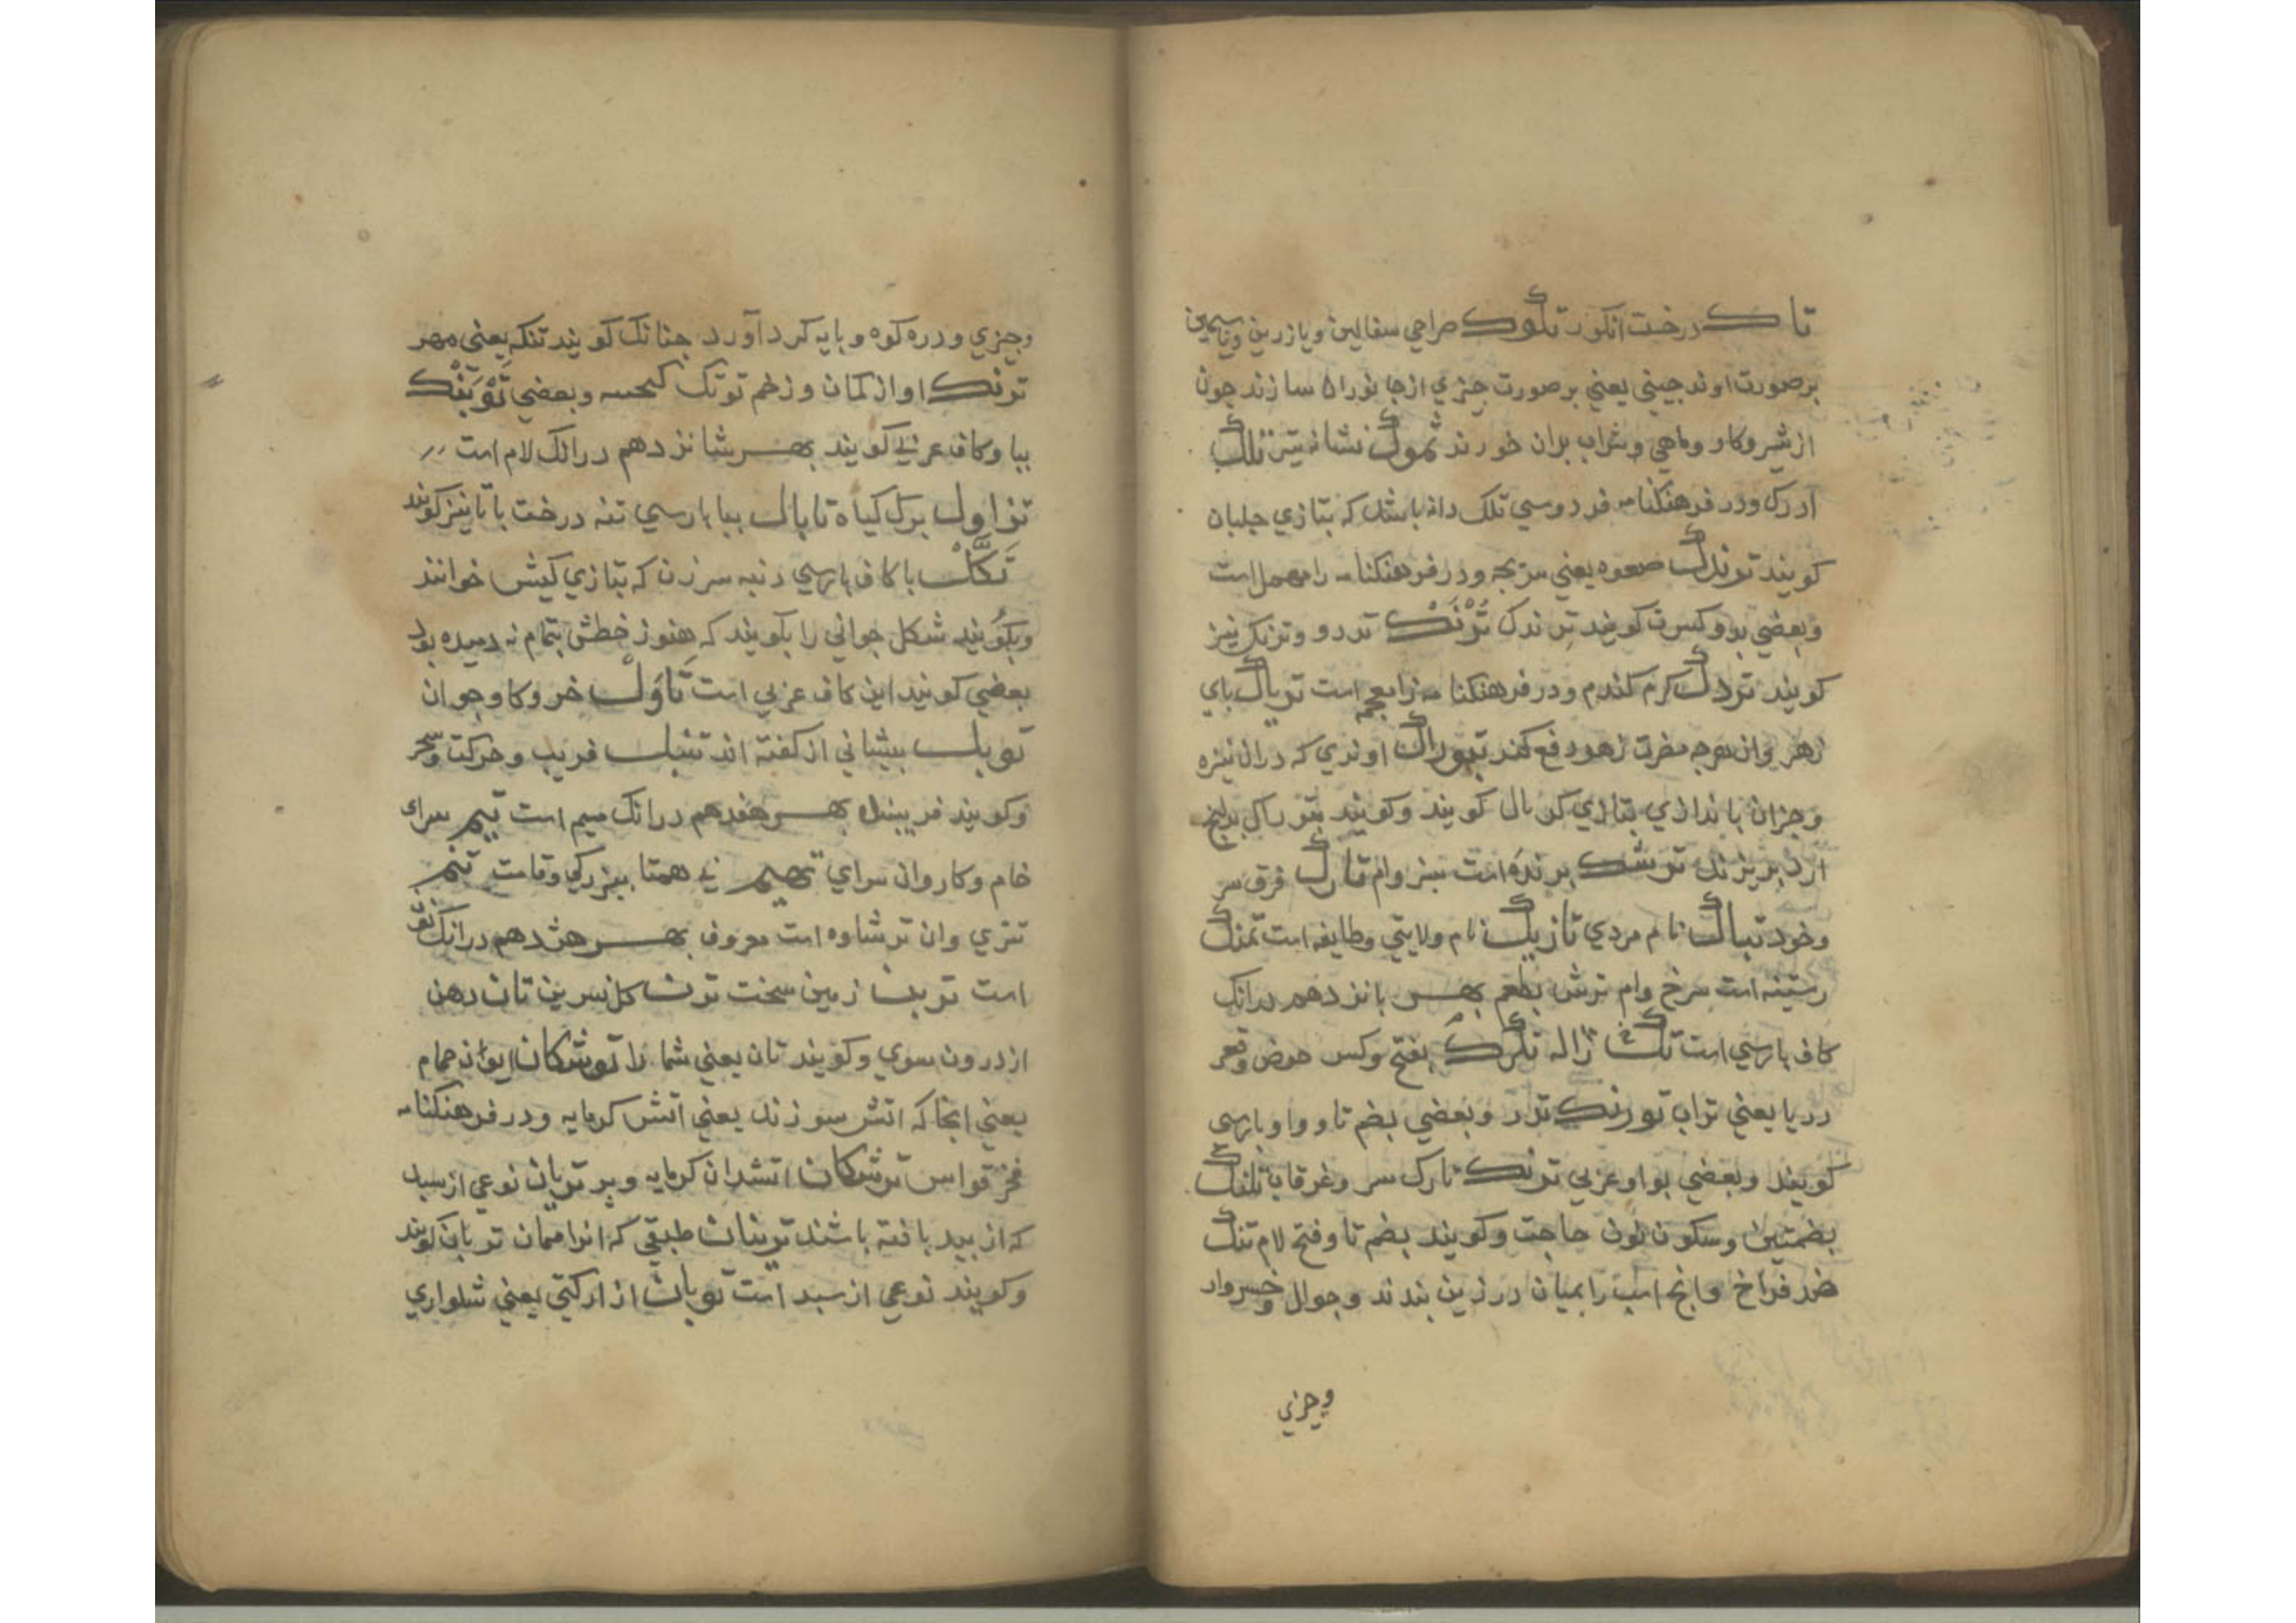 تاك درخت انكور تلوك صراحي سفالين ويا زرين ويا سيمين
برصورت اوند جيني يعني برصورت جيزي از جانوران سازند جون
از شير وكاو وماهي وشراب بدان خورند تموك نشانه تير تلك
ادرك ودر فرهنكنامه فردوسي تلك دانه باشد كه بتازي جلبان
كويند توندك صعوه يعني سريجه ودر فرهنكنامه را مهمل است
وبعضي بوو كسرت كويند ترندك تُرْنَك تدرو وتزنك نيز
كويند تردك كرم كندم ودر فرهنكنامه زا معجمه است ترياك باي
زهر وان هرجه مضرت زهر دفع كند تبوراك اوندي كه دران نيزه
وجزان باندازي بتازي كربال كويند وكويند بتوراك بدانج
ارد بريزند ترشك برنده است سبز وام تارك فرق سر
وخود تباك نام مردي تازيك نام ولايتي وطايفه است تمنك
رستنيه است سرخ وام ترش بطعم بهر بانزدهم درانك
كاف پارسي است تك ژاله تكرك بفتح وكسر حوض وقعر
دريا يعني تراب تورنك تدرو وبعضي بضم تا وواو پارسي
كويند وبعضي بواو عربي تونك تارك سر وغرقاب تلنك
بضمتين وسكون نون حاجت وكويند بضم تا وفتح لام تنك
ضد فراخ وانج اسب را بميان در زين بندند وجوال وخسروار
وجزي
وجيزي ودره كوه وبايه كرد آورد جنانك كويند تنكه يعني مهر
ترنك اواز كمان وزخم توتك كنجسه وبعضي توبنك
ببا وكاف عربي كويند بهر شانزدهم درانك لام است
تزاول برك كياه تاپال ببا پارسي تنه درخت باتا نيز كويند
تَكَّل با كاف پارسي دنبه سرزن كه بتازي كبش خوانند
وبكويند شكل جواني را بكويند كه هنوز خطش بتمام نه دميده بود
بعضي كويند اين كاف عربي است تاوَلْ خر وكاو جوان
تويل بيشاني از كفته اند تنبل فريب وحركت وسحر
وكويند فريبنده بهر هفدهم درانك ميم است تيم سراي
خام وكاروان سراي تهيم ني همتا ببزركي وقامت تتم
تتري وان ترشاوه است معروف بهر هژدهم درانك نون
است توبن زمين سخت ترن كل نسرين تان دهن
از درون سوي وكويند تان يعني شما را توشكان ايوان حمام
يعني انجا كه اتش سوزند يعني اتش كرمابه ودر فرهنكنامه
فخر قواس ترشكان اتشدان كرمابه وير تريان نوعي از سبد
كه از بيد بافته باشند ترينان طبقي كه انرا همان تريان كويند
وكويند نوعي از سبد است توبان ازار كتي يعني شلواري